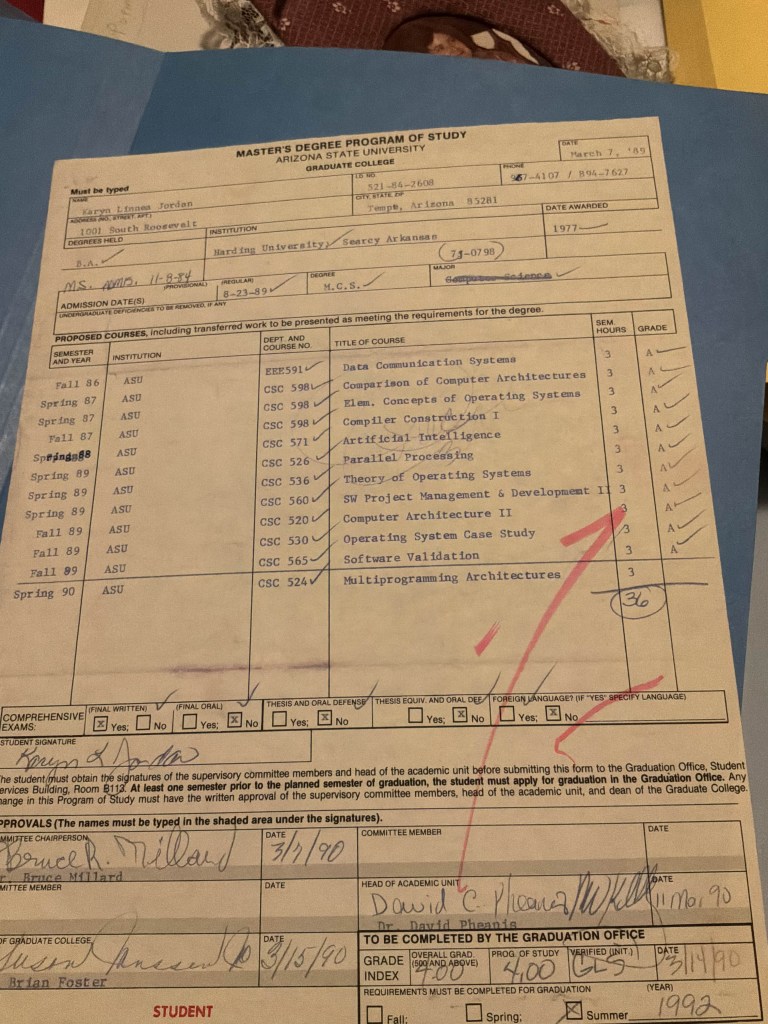 MASTER'S DEGREE PROGRAM OF STUDY
ARIZONA STATE UNIVERSITY
GRADUATE COLLEGE
DATE
March 7, '89
Must be typed
NAME
Karyn Linnea Jordan
I.D. NO.
521-84-2608
PHONE
967-4107 / 894-7627
ADDRESS (NO., STREET, APT.)
1001 South Roosevelt
CITY, STATE, ZIP
Tempe, Arizona 85281
DEGREES HELD
B.A.
INSTITUTION
Harding University, Searcy Arkansas
DATE AWARDED
1977
MS. ADMB. 11-8-84
(PROVISIONAL)
(REGULAR)
8-23-89
DEGREE
M.C.S.
71-0798
MAJOR
Computer Science
ADMISSION DATE(S)
UNDERGRADUATE DEFICIENCIES TO BE REMOVED, IF ANY
PROPOSED COURSES, including transferred work to be presented as meeting the requirements for the degree.
SEMESTER AND YEAR INSTITUTION DEPT. AND COURSE NO. TITLE OF COURSE SEM. HOURS GRADE
Fall 86 ASU EEE591 Data Communication Systems 3 A
Spring 87 ASU CSC 598 Comparison of Computer Architectures 3 A
Spring 87 ASU CSC 598 Elem. Concepts of Operating Systems 3 A
Fall 87 ASU CSC 598 Compiler Construction I 3 A
Spring 88 ASU CSC 571 Artificial Intelligence 3 A
Spring 89 ASU CSC 526 Parallel Processing 3 A
Spring 89 ASU CSC 536 Theory of Operating Systems 3 A
Spring 89 ASU CSC 560 SW Project Management & Development II 3 A
Fall 89 ASU CSC 520 Computer Architecture II 3 A
Fall 89 ASU CSC 530 Operating System Case Study 3 A
Fall 89 ASU CSC 565 Software Validation 3 A
Spring 90 ASU CSC 524 Multiprogramming Architectures 3
36
COMPREHENSIVE EXAMS:
(FINAL WRITTEN)
X Yes; No
(FINAL ORAL)
Yes; X No
THESIS AND ORAL DEFENSE
Yes; X No
THESIS EQUIV. AND ORAL DEF.
Yes; X No
FOREIGN LANGUAGE? (IF "YES" SPECIFY LANGUAGE)
Yes; X No
STUDENT SIGNATURE
Karyn L Jordan
The student must obtain the signatures of the supervisory committee members and head of the academic unit before submitting this form to the Graduation Office, Student
ervices Building, Room B113. At least one semester prior to the planned semester of graduation, the student must apply for graduation in the Graduation Office. Any
ange in this Program of Study must have the written approval of the supervisory committee members, head of the academic unit, and dean of the Graduate College.
PPROVALS (The names must be typed in the shaded area under the signatures).
MMITTEE CHAIRPERSON
Bruce R. Millard
r. Bruce Millard
DATE
3/7/90
COMMITTEE MEMBER
DATE
MITTEE MEMBER
DATE
HEAD OF ACADEMIC UNIT
David C. Pheanis
Dr. David Pheanis
DATE
11 Mar 90
OF GRADUATE COLLEGE
Brian Foster
DATE
3/15/90
TO BE COMPLETED BY THE GRADUATION OFFICE
GRADE INDEX
OVERALL GRAD. (500 AND ABOVE)
4.00
PROG. OF STUDY
4.00
VERIFIED (INIT.)
GLS
DATE
3/14/90
REQUIREMENTS MUST BE COMPLETED FOR GRADUATION
Fall; Spring; X Summer
(YEAR)
1992
STUDENT